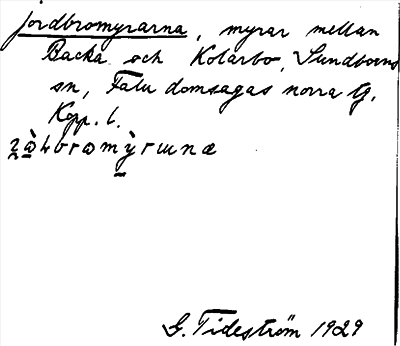 jordbromyrarna, myrar mellan
Backa och Kolarbo, Sundborns
sn, Falu domsagas norra tg,
Kopp. l.
G. Tideström 1929